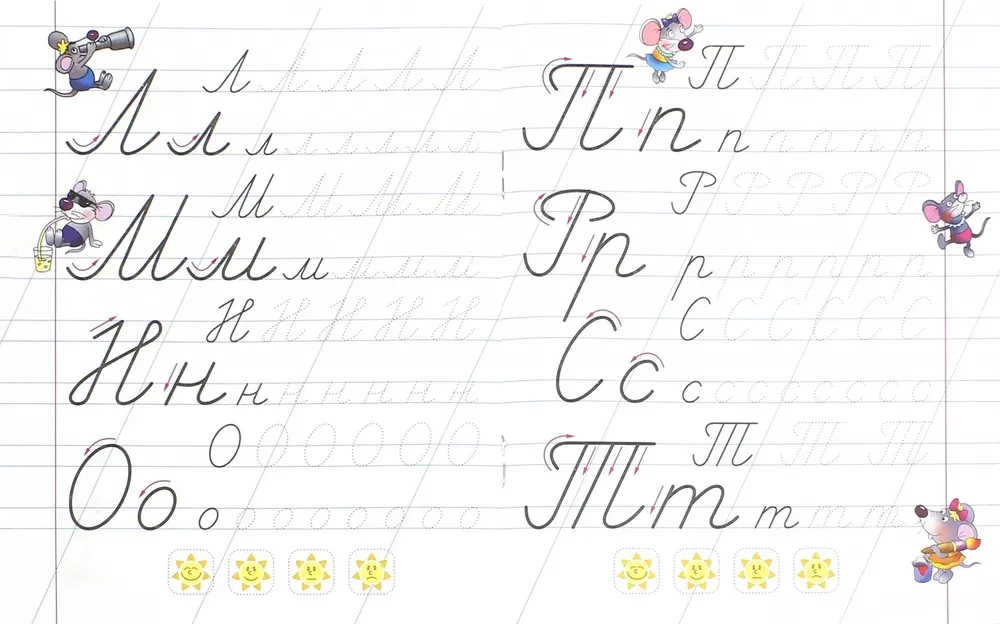 Л
Л л л
М
М м м
Н
Н н н
О
О о о
П
П п п
Р
Р р р
С
С с с
Т
Т т т